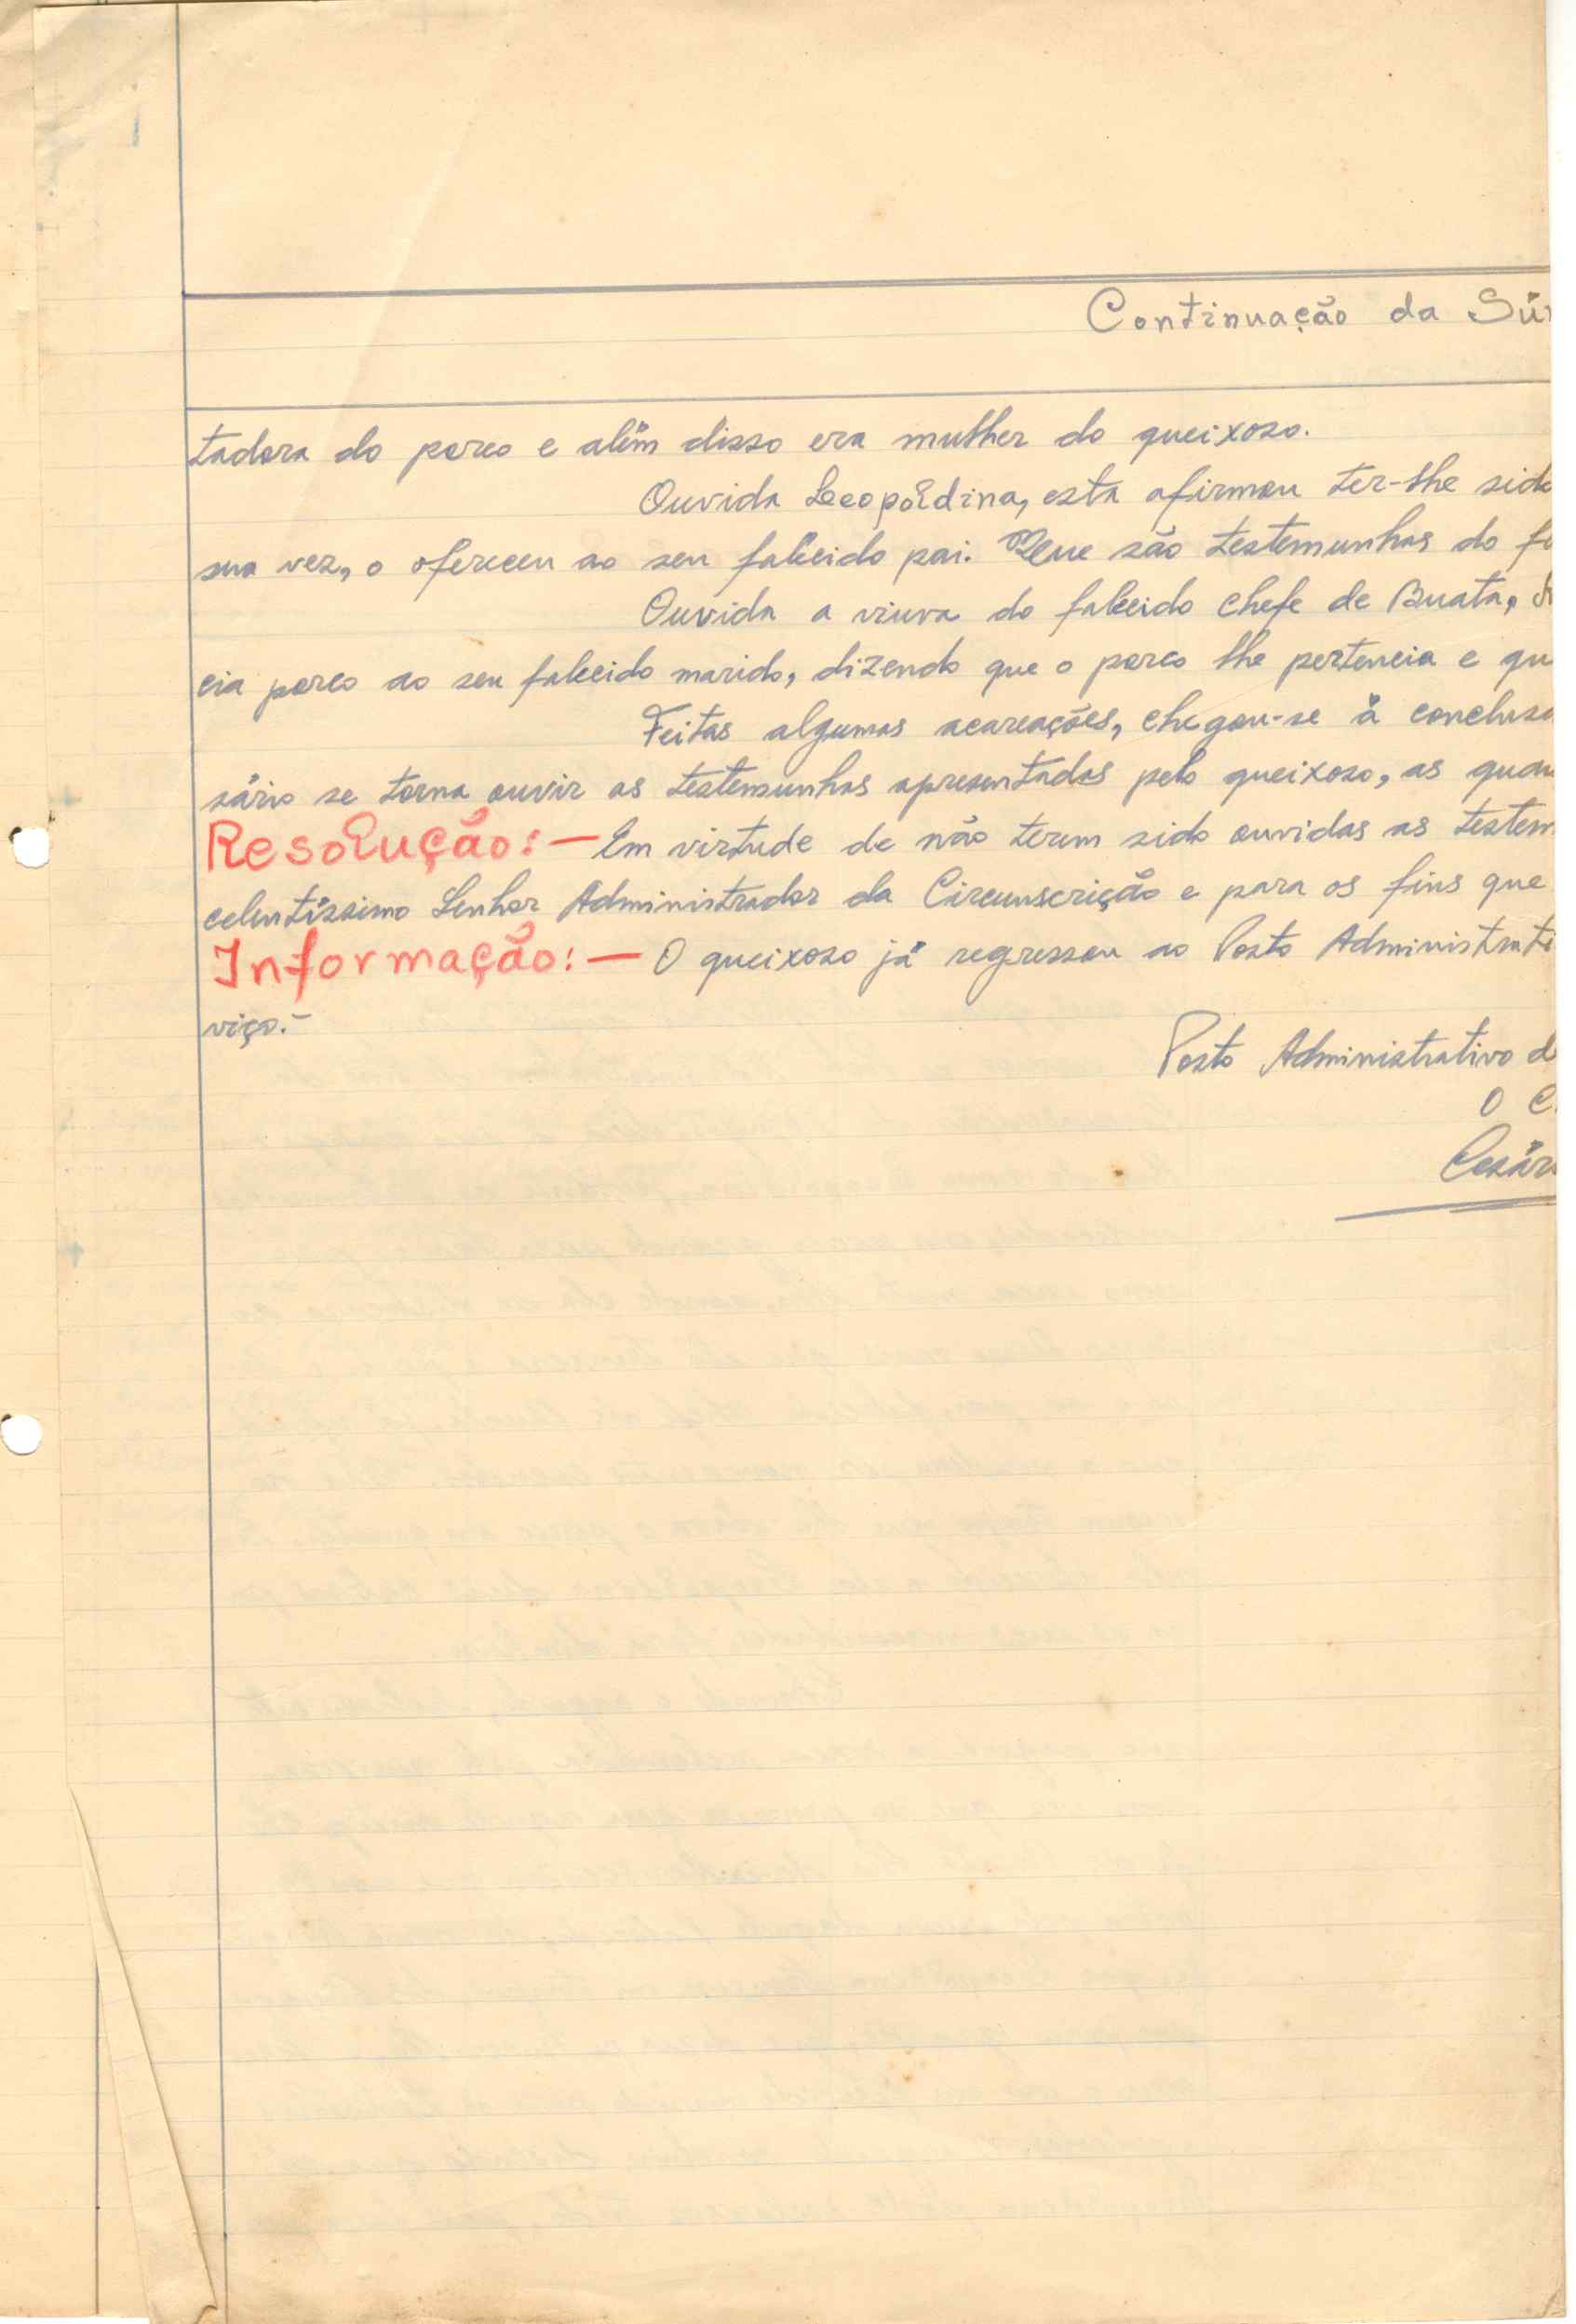 Continuação da Sú
tadora do porco e além disso era mulher do queixoso.
Ouvida Leopoldina, esta afirmou ter-lhe sido
sua vez, o ofereceu ao seu falecido pai. Que são testemunhas do
Ouvida a viuva do falecido chefe de Buata,
cia porco ao seu falecido marido, dizendo que o porco lhe pertencia e qu
Feitas algumas acareações, chegou-se à conclusã
sário se torna ouvir as testemunhas apresentadas pelo queixoso, as quai
Resolução:—Em virtude de não terem sido ouvidas as testem
celentíssimo Senhor Administrador da Circunscrição e para os fins que
Informação:— O queixoso já regressou ao Posto Administrati
viço.-
Posto Administrativo d
O C
Cesár